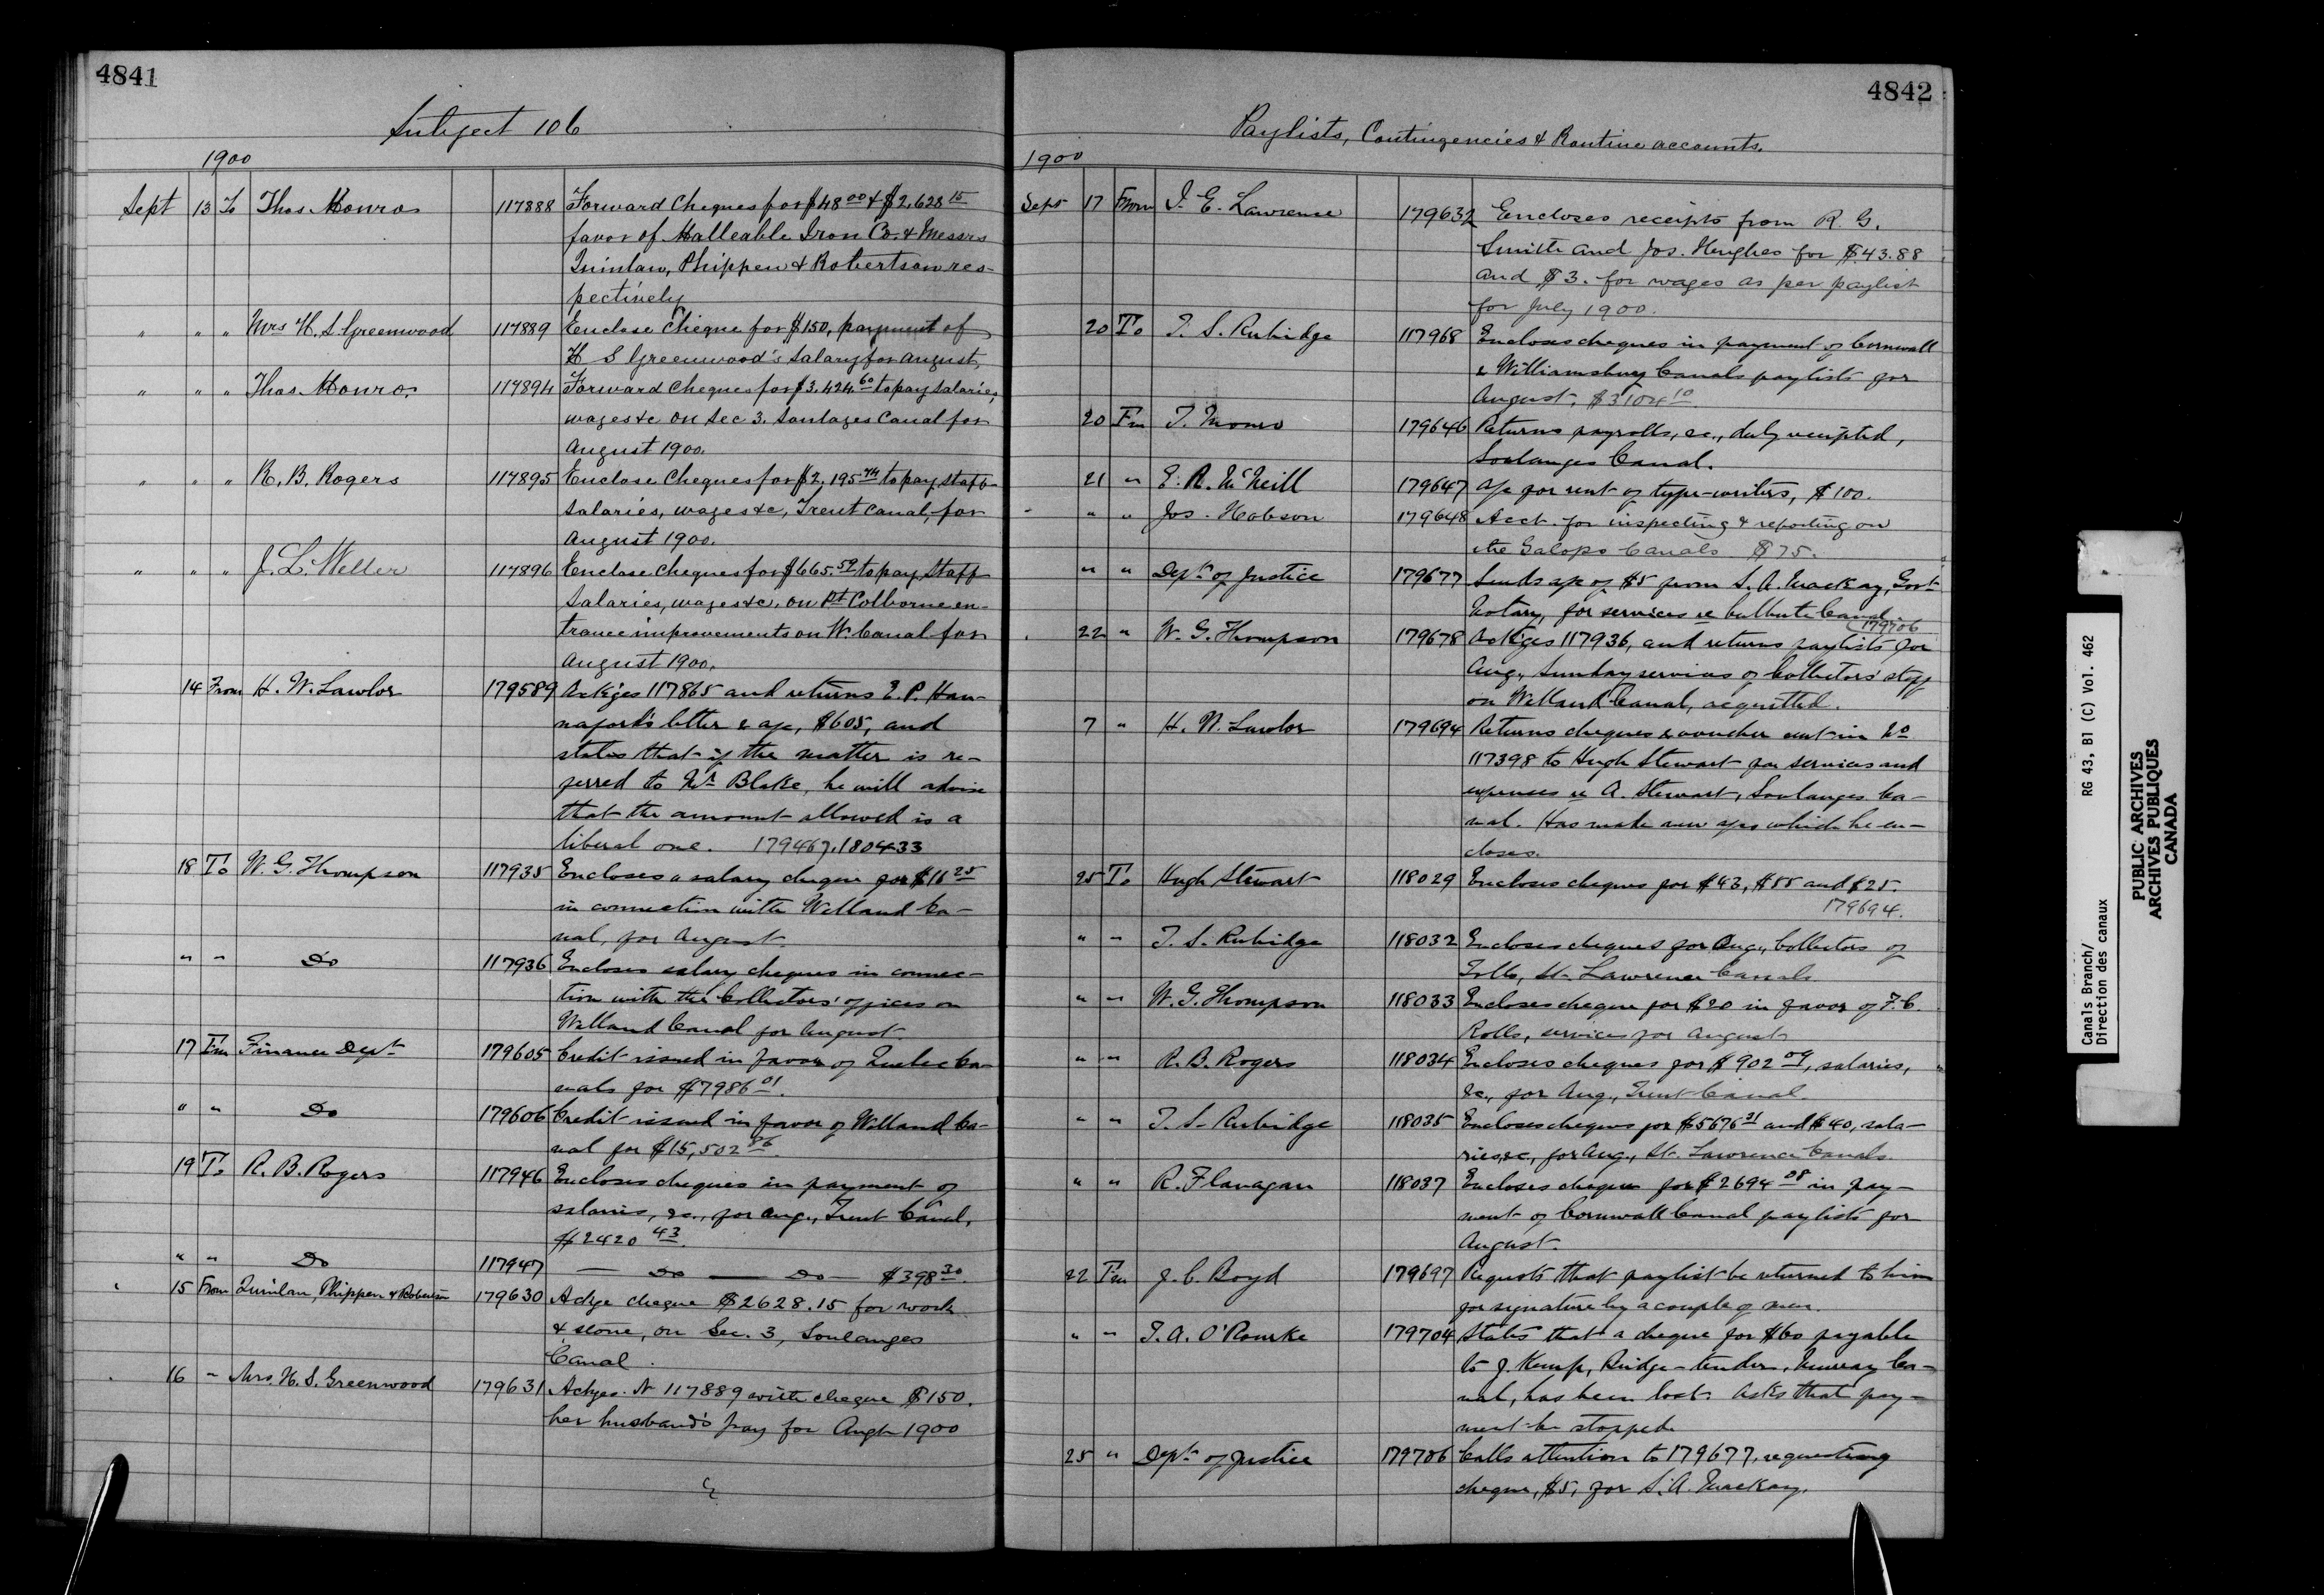 4841
Subject 106
1900
Sept 13 To Thos Monro 117888 Forward Cheques for $48 00 & $2,628 15
favor of Malleable Iron Co. & Messrs
Quinlan, Phippen & Robertson res-
pectively
" " " Mrs H. S. Greenwood 117889 Enclose Cheque for $150, payment of
H S Greenwood's Salary for August,
" " " Thos Monro. 117894 Forward Cheques for $3,424 60 to pay salaries,
wages &c on Sec 3. Soulages Canal for
August 1900.
" " " R. B. Rogers 117895 Enclose Cheques for $2,195 74 to pay staff
salaries, wages &c, Trent Canal, for
August 1900.
" " " J. L. Weller 117896 Enclose Cheques for $665.59 to pay Staff
Salaries, wages &c. on Pt Colborne en-
trance improvements on W. Canal for
August 1900.
14 From H. W. Lawlor 179589 Ackges 117865 and returns E. P. Han-
naford's letter & a/c, $605, and
states that if the matter is re-
ferred to Mr Blake, he will advise
that the amount allowed is a
liberal one. 179467. 180433
18 To W. G. Thompson 117935 Encloses a salary cheque for $11 25
in connection with Welland Ca-
nal, for August.
" " Do 117936 Encloses salary cheques in connec-
tion with the Collectors' offices on
Welland Canal for August.
17 Fm Finance Dept 179605 Credit issued in favor of Quebec Ca-
nals for $7986 01.
" " Do 179606 Credit issued in favor of Welland Ca-
nal for $15,502 86.
19 To R. B. Rogers 117946 Encloses cheques in payment of
salaries, &c., for Aug., Trent Canal,
$2420 43.
" " Do 117947 — Do — Do — $398 30.
15 From Quinlan, Phippen & Robertson 179630 Ackge cheque $2628.15 for work
& stone, on Sec. 3, Soulanges
Canal.
16 " Mrs. H. S. Greenwood 179631 Ackges. N 117889 with cheque $150.
her husband's pay for Augt 1900
4842
Paylists, Contingencies & Routine accounts.
1900
Sept 17 From J. E. Lawrence 179632 Encloses receipts from R. G.
Smith and Jos. Hughes for $43.88
and $3. for wages as per paylist
for July 1900.
20 To T. S. Rubidge 117968 Encloses cheques in payment of Cornwall
& Williamsburg Canals paylists for
August, $3104 10.
20 Fm T. Monro 179646 Returns payrolls, &c., duly receipted,
Soulanges Canal.
21 " E. R. McNeill 179647 A/c for rent of type-writers, $100.
" " Jos. Hobson 179648 Acct. for inspecting & reporting on
the Galops Canals $75.
" " Dept of Justice 179677 Sends a/c of $5 from S. A. Mackay, Govt
Notary, for services re Culbute Canal.
179706
22 " W. G. Thompson 179678 Ackges 117936, and returns paylists for
Aug., Sunday services of Collectors' staff
on Welland Canal, acquitted.
7 " H. W. Lawlor 179694 Returns cheques & voucher sent in No
117398 to Hugh Stewart for services and
expenses re A. Stewart, Soulanges Ca-
nal. Has made new a/cs which he en-
closes.
25 To Hugh Stewart 118029 Encloses cheques for $43, $55 and $25.
179694.
" " T. S. Rubidge 118032 Encloses cheques for Aug., Collectors of
Tolls, St. Lawrence Canals.
" " W. G. Thompson 118033 Encloses cheque for $20 in favor of F. C.
Rolls, services for August.
" " R. B. Rogers 118034 Encloses cheques for $902 09, salaries,
&c., for Aug., Trent Canal.
" " T. S. Rubidge 118035 Encloses cheques for $5676 31 and $40, sala-
ries, &c., for Aug., St. Lawrence Canals.
" " R. Flanagan 118037 Encloses cheque for $2694 08 in pay-
ment of Cornwall Canal paylists for
August.
22 Fm J. C. Boyd 179697 Requests that paylist be returned to him
for signature by a couple of men.
" " T. A. O'Rourke 179704 States that a cheque for $60 payable
to J. Kemp, Bridge-tender, Murray Ca-
nal, has been lost. Asks that pay-
ment be stopped.
25 " Dept of Justice 179706 Calls attention to 179677, requesting
cheque, $5, for S. A. Mackay.
Canals Branch/ RG 43, B1 (C) Vol. 462
Direction des canaux
PUBLIC ARCHIVES
ARCHIVES PUBLIQUES
CANADA